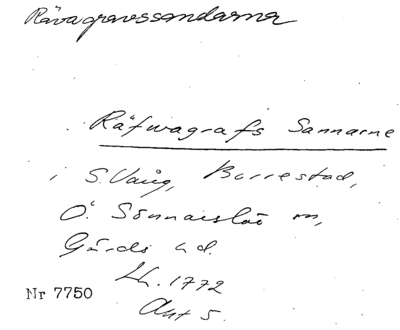 Rävagravssandarna
Räfwagrafs Sannarne
i S. Vång, Borrestad,
Ö. Sönnarslöv sn,
Gärds hd.
Lh. 1772
Akt 5.
Nr 7750